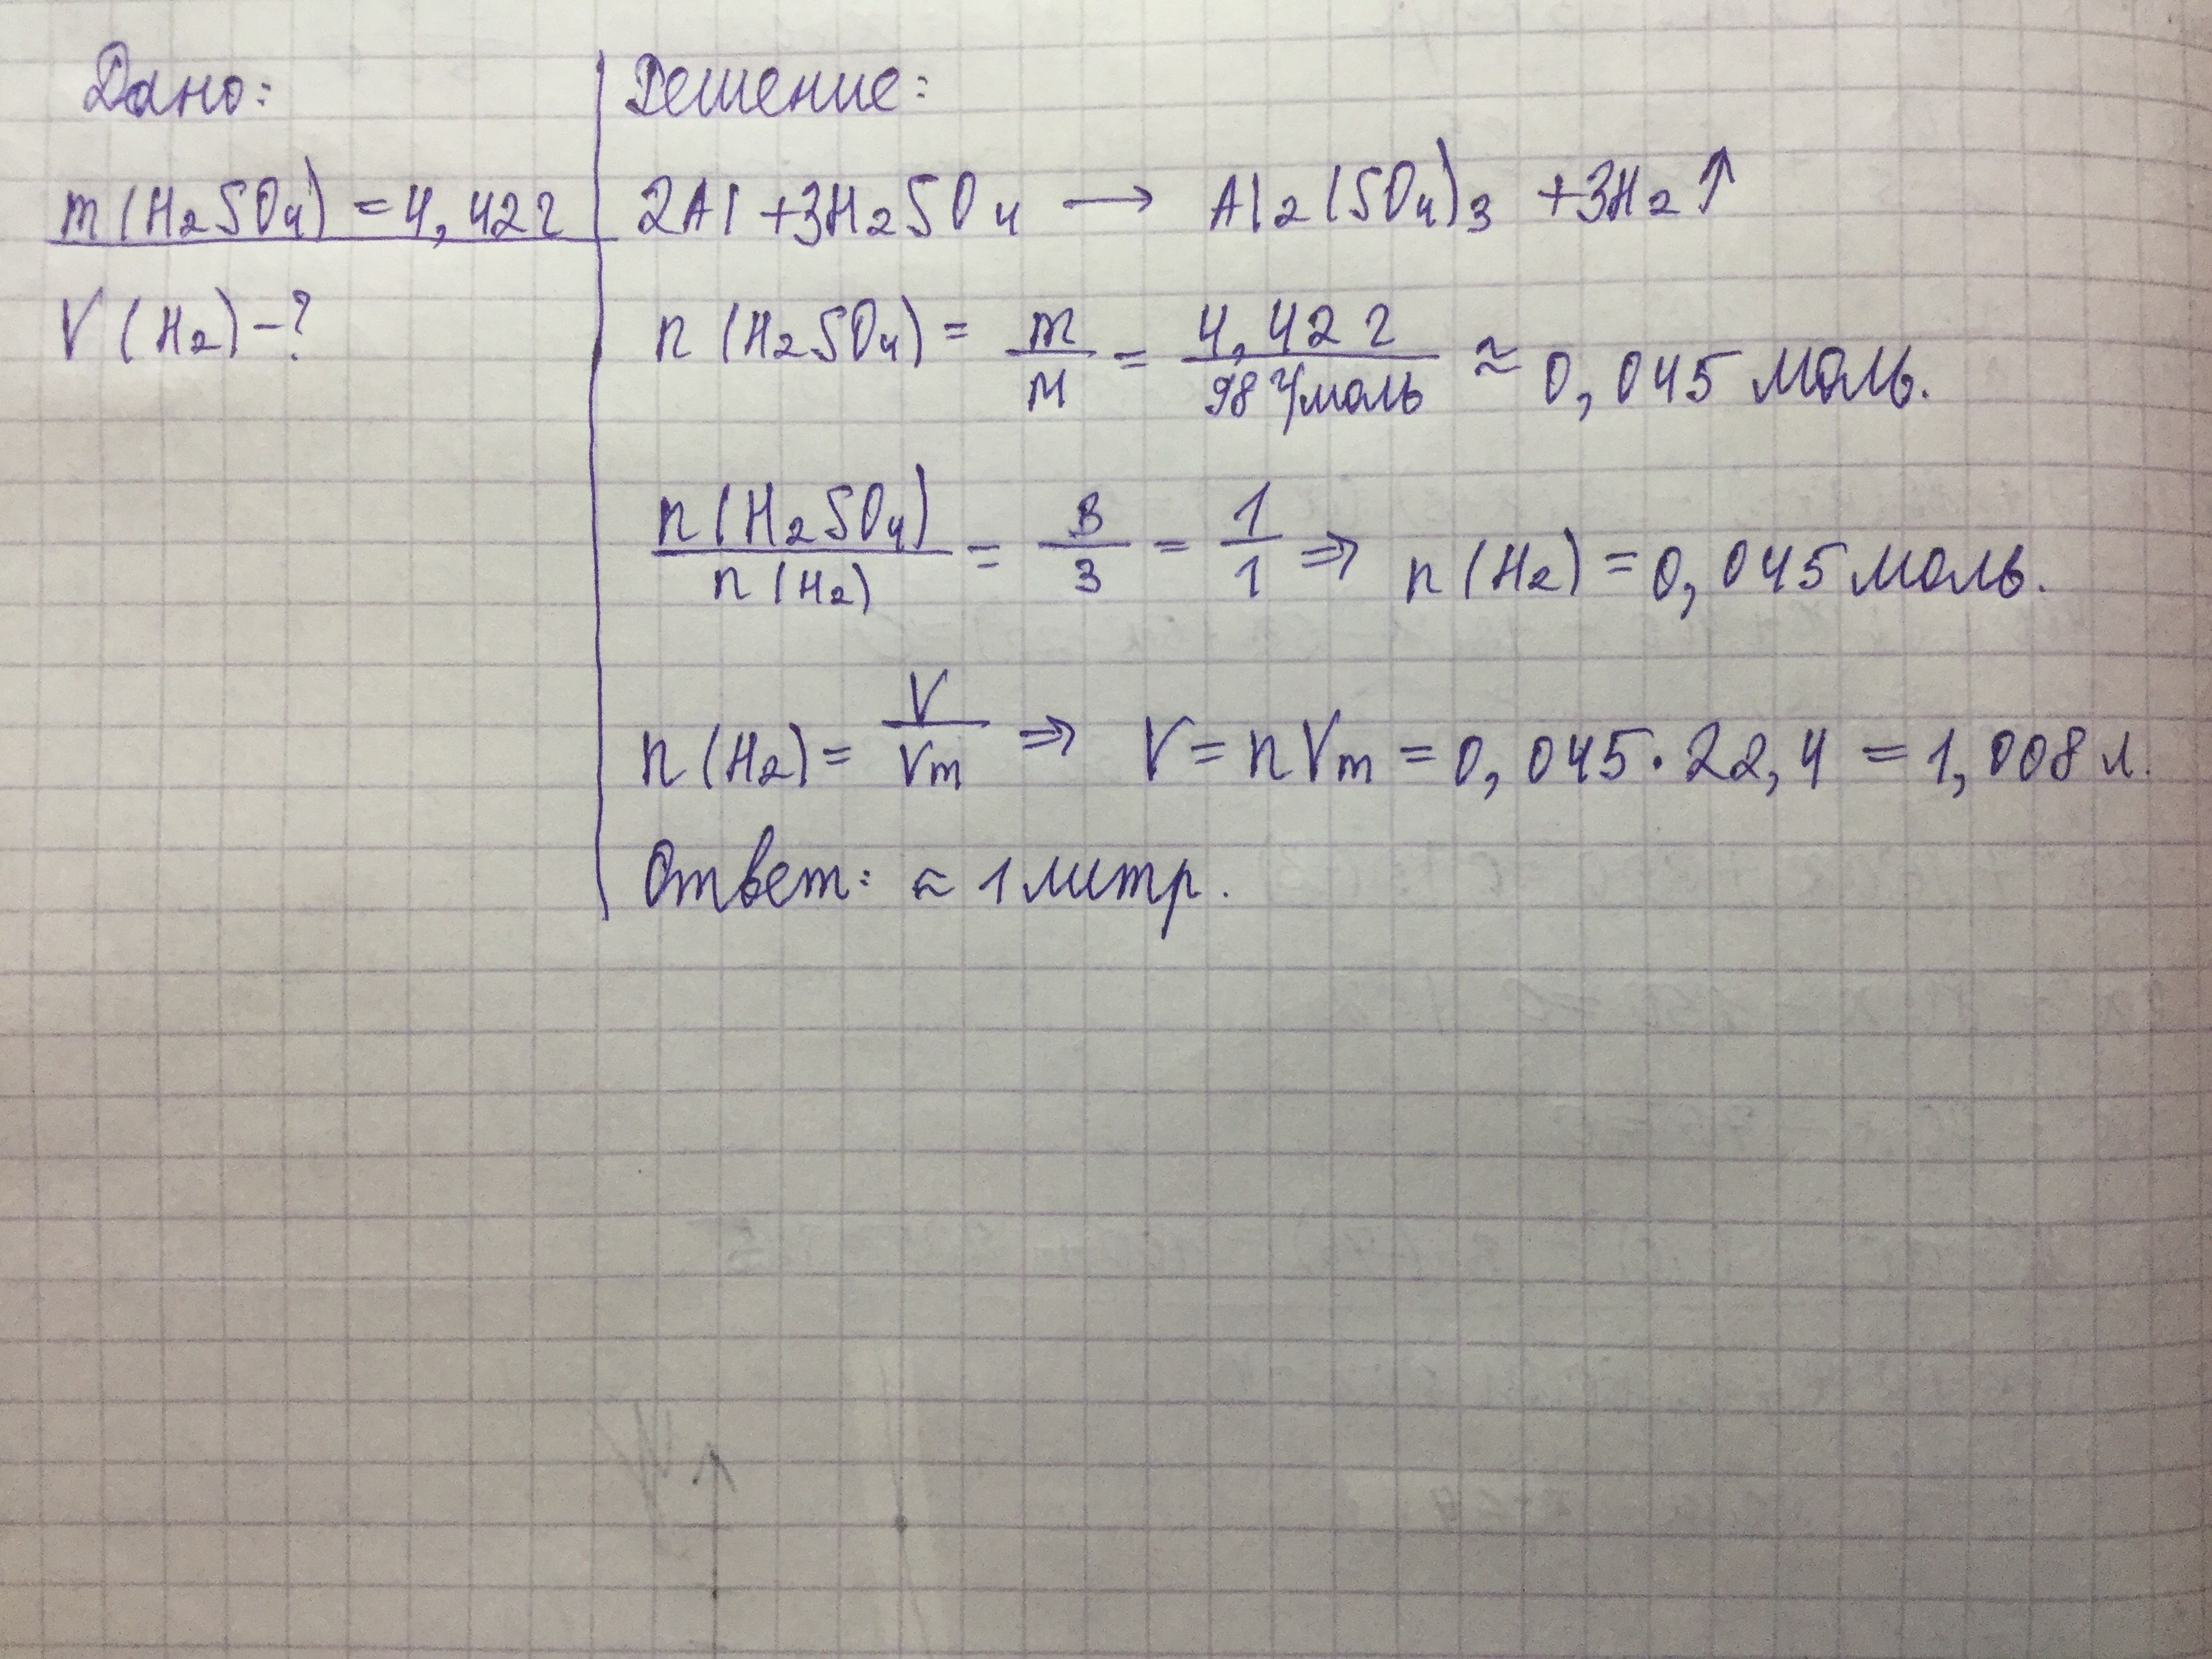 Дано:
m(H₂SO₄) = 4,42 г
V(H₂) – ?
Решение:
2Al + 3H₂SO₄ → Al₂(SO₄)₃ + 3H₂↑
n(H₂SO₄) = m/M = 4,42 г / 98 г/моль ≈ 0,045 моль.
n(H₂SO₄)/n(H₂) = 3/3 = 1/1 ⇒ n(H₂) = 0,045 моль.
n(H₂) = V/Vm ⇒ V = nVm = 0,045 · 22,4 = 1,008 л.
Ответ: ≈ 1 литр.